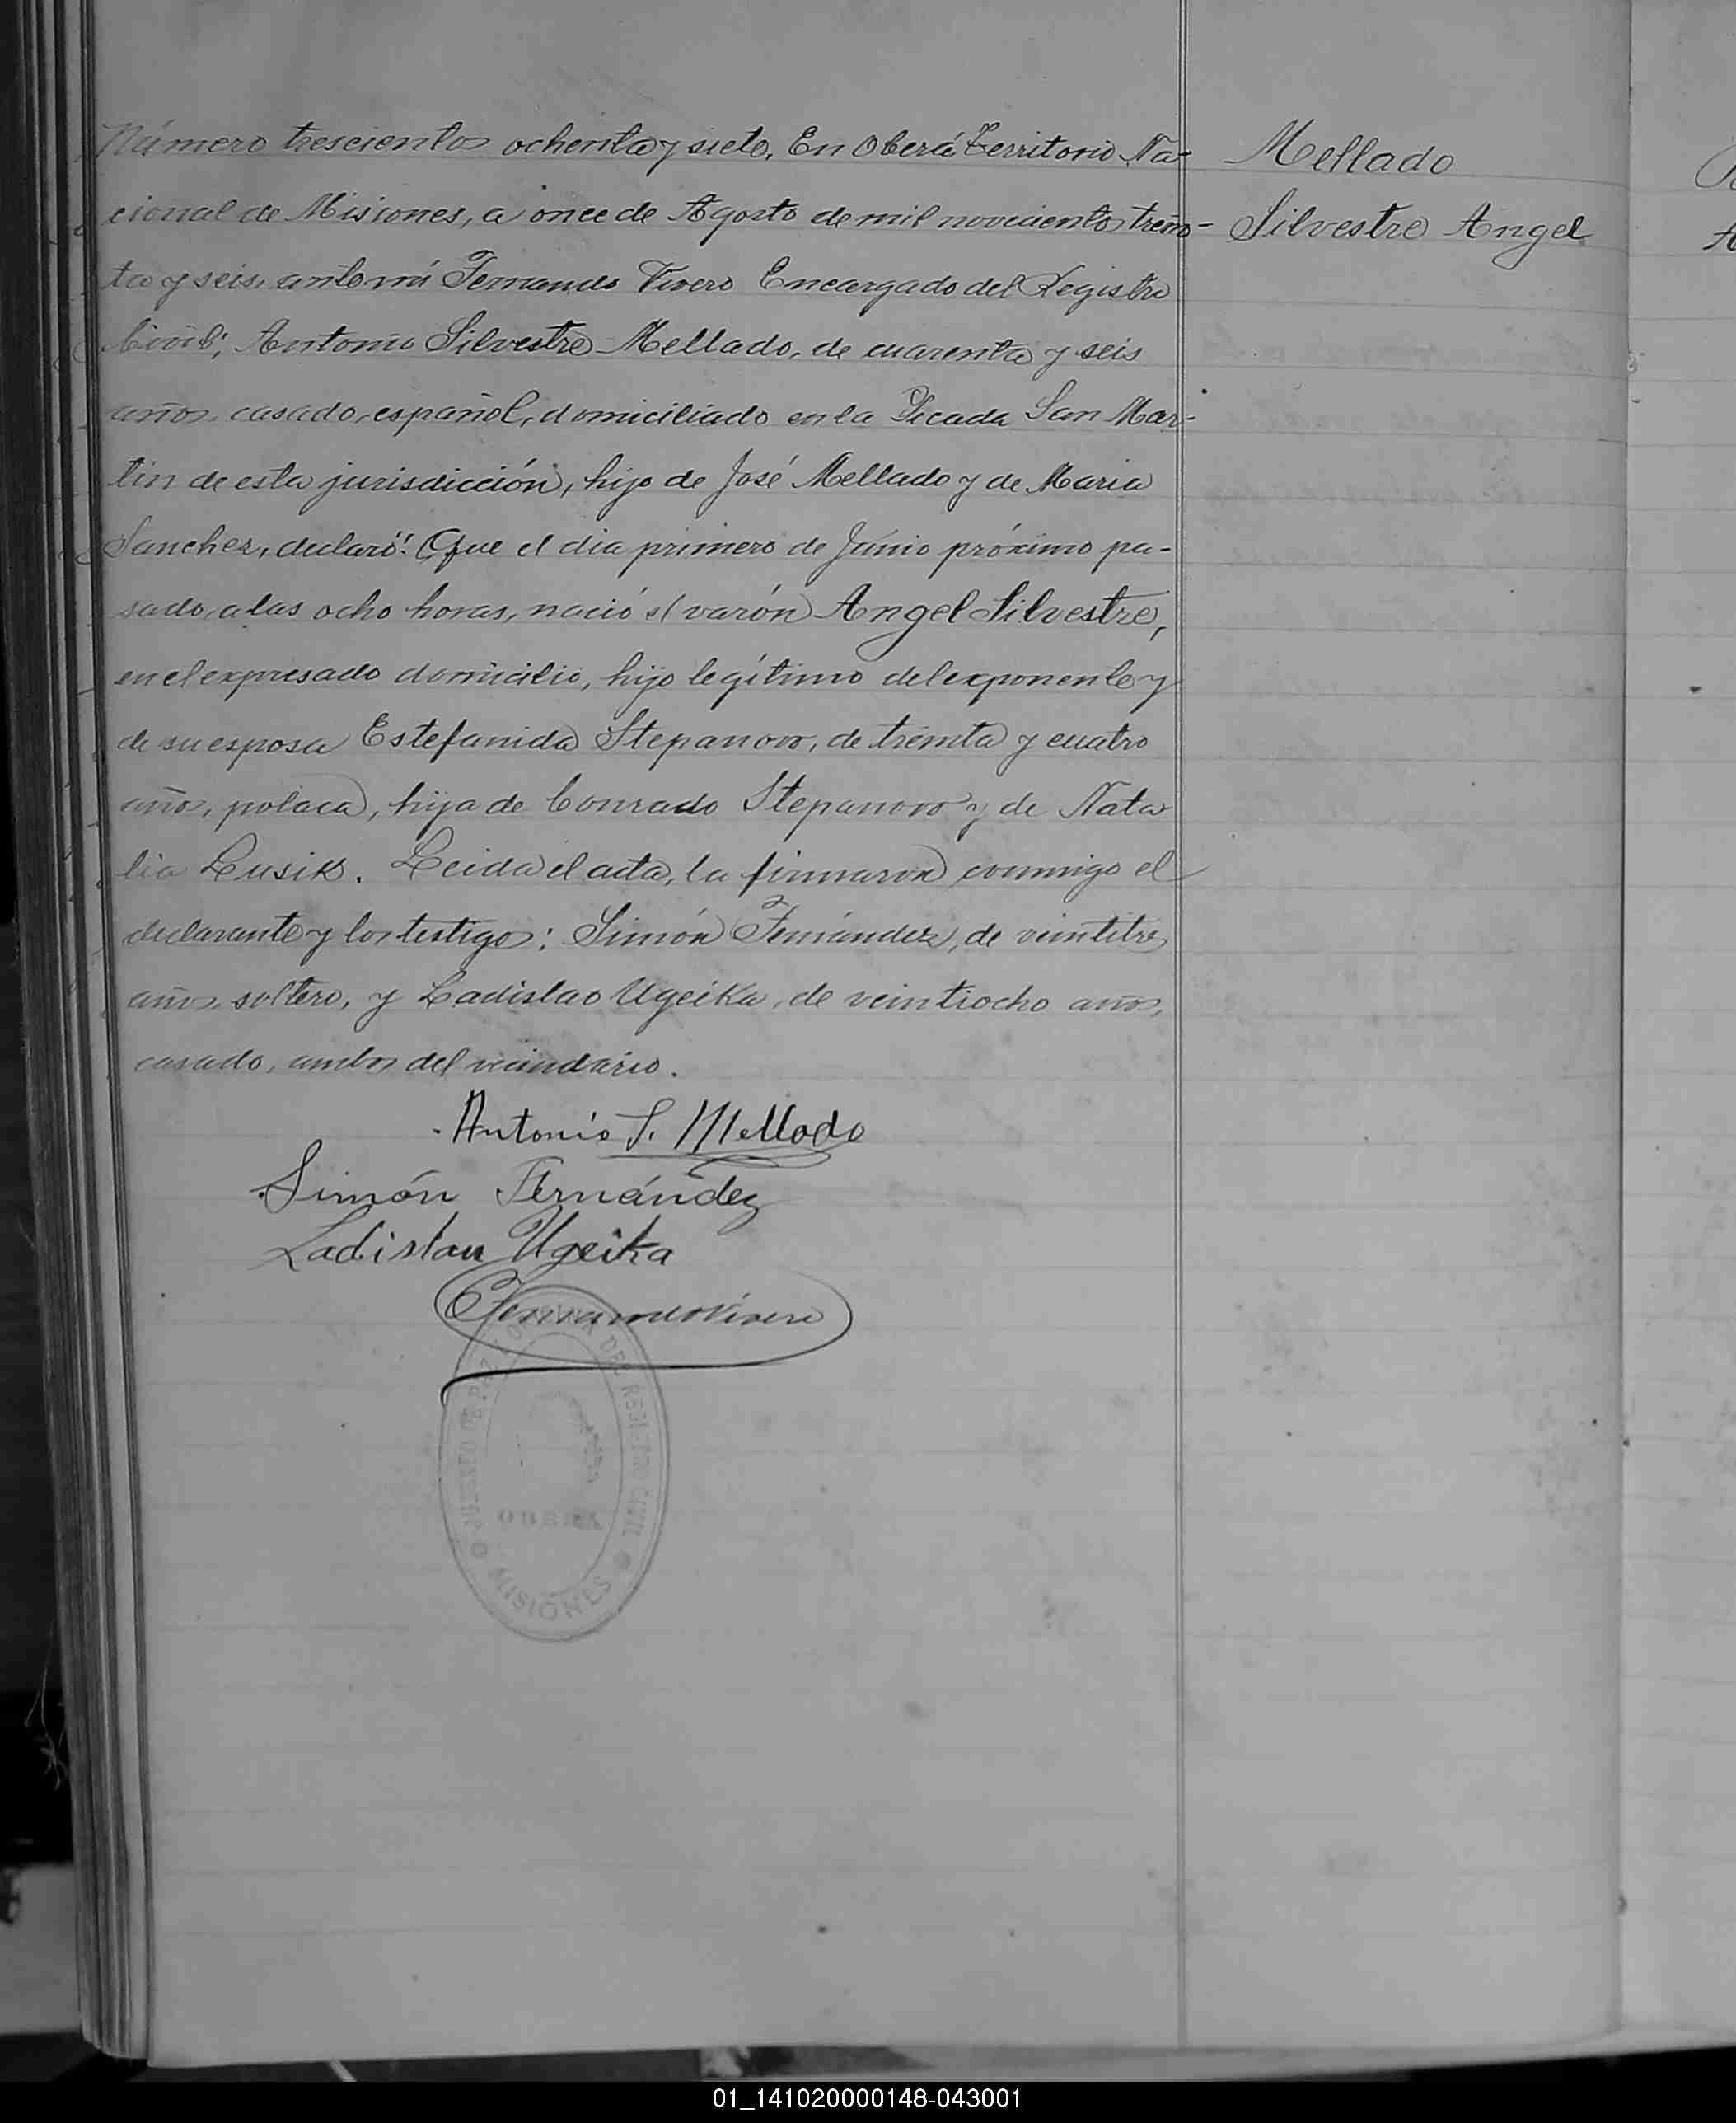 Número trescientos ochenta y siete. En Oberá Territorio Na-
cional de Misiones, a once de Agosto de mil novecientos trein-
ta y seis, ante mí Fernando Vivero Encargado del Registro
Civil; Antonio Silvestre Mellado, de cuarenta y seis
años, casado, español, domiciliado en la Picada San Mar-
tín de esta jurisdicción, hijo de José Mellado y de Maria
Sanchez, declaró: Que el dia primero de Júnio próximo pa-
sado, a las ocho horas, nació el varón Angel Silvestre,
en el expresado domicilio, hijo legítimo del exponente y
de su esposa Estefanida Stepanow, de treinta y cuatro
años, polaca, hija de Conrado Stepanow y de Nata
lia Lusik. Leida el acta, la firmaron conmigo el
declarante y los testigos: Simón Fernández, de veintitres
años, soltero, y Ladislao Ugeika, de veintiocho años,
casado, ambos del vecindario.
Antonio S. Mellado
Simón Fernández
Ladislau Ugeika
Fernando Vivero
DEL REGISTRO CIVIL
OBERA
MISIONES
Mellado
Silvestre Angel
01_141020000148-043001